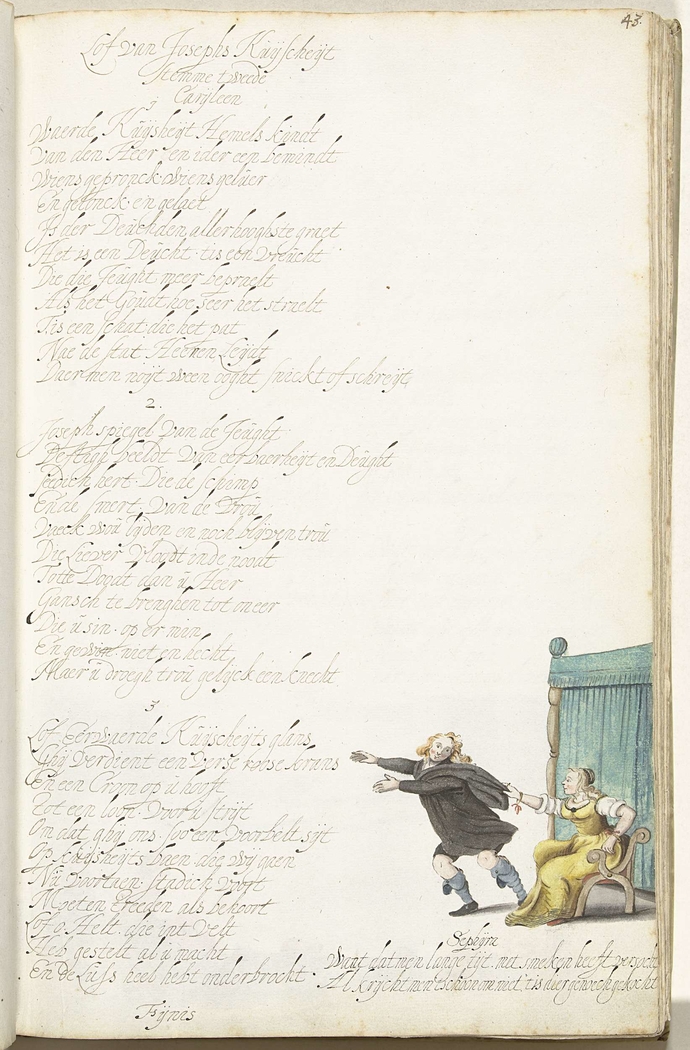 43.
Lof van Josephs Kuÿscheÿt
Stemme tweede
Carileen
1
Waerde Kuÿsheÿt Hemels kindt
Van den Heer en ider een bemindt
Wiens gepronck wiens geluer
En gelonck en gelaet
Is der Deuchden allerhooghste graet
Het is een Deucht tis een Vreucht
Die die Jeught meer bepraelt
Als het Goudt hoe seer het straelt
Tis een schat die het pat
Nae de stat Heenen Leÿdt
Daer men noÿt ween ooght snickt of schreÿt
2.
Joseph spiegel van de Jeught
Deftigh beeldt van eerbaerheÿt en Deught
hert Die de schimp
En de smert van de
Vaeck wou lÿden en noch blÿven trou
Die Liever in de noodt
Totte Doodt dan u Heer
Gansch te brenghen tot oneer
Die u sin op er min
En niet en hecht
Maer u droegh trou gelÿck een knecht
3
Lof Eerwaerde Kuÿscheÿts glans
Ghÿ Verdient een roose krans
En een Croon op u hooft
Tot een loon Voor u strÿt
Om dat ghÿ ons soo een Voorbelt sÿt
Op Kuÿsheÿts baen die wÿ gaen
Nu Voortaen stadich Voort
Moeten treeden als behoort
Lof o Helt die int Velt
Heb gestelt al u macht
En de Luss heel hebt onderbrocht
Fÿnis
Sephÿra
Want dat men lange tÿt met smeken heeft versocht
Al krÿcht men tschoon om niet, tis dier genoech gekocht